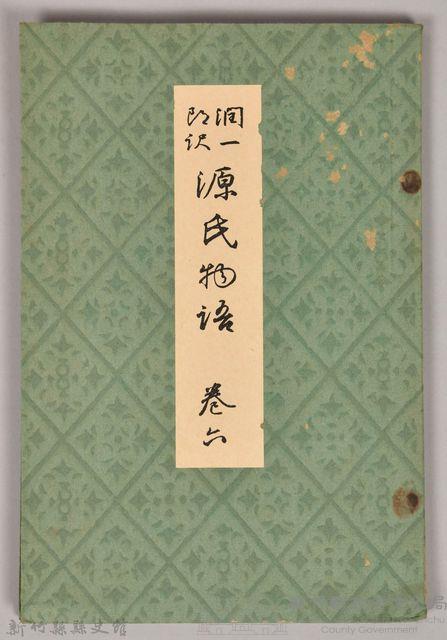 潤一
郎訳
源氏物語
卷六
新竹縣縣史館
局
County Government